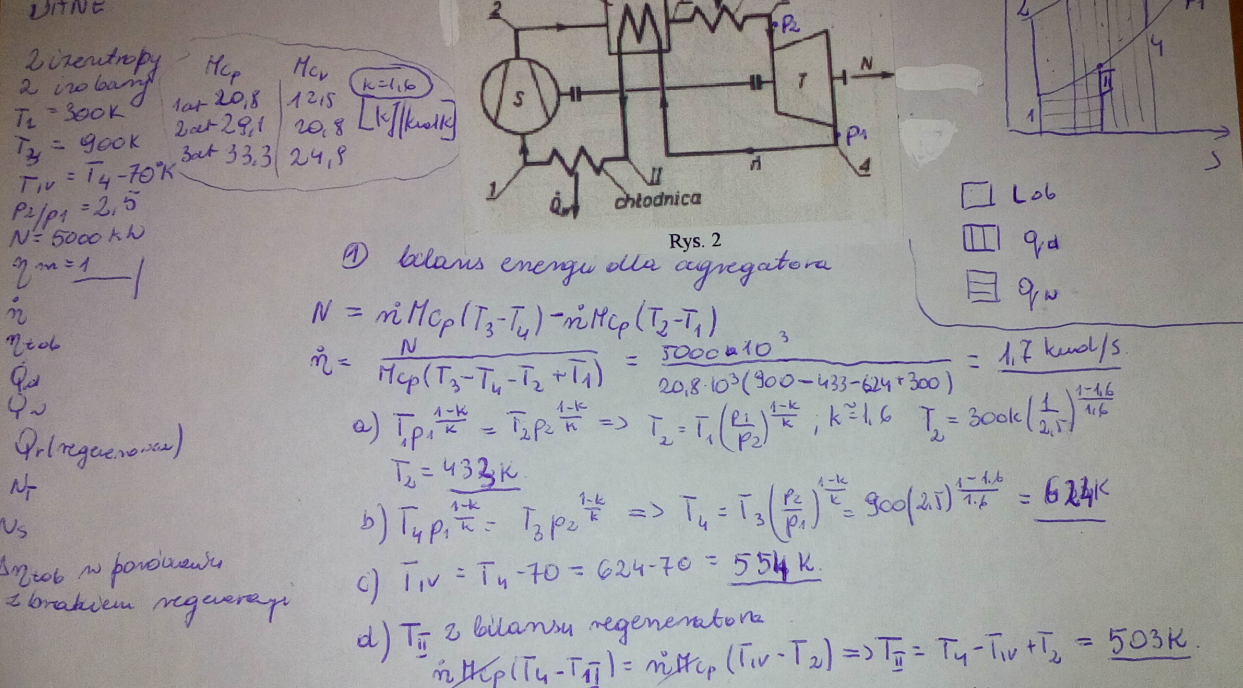 DANE
2 izentropy
2 izobary
T1 = 300K
T3 = 900K
TIV = T4 - 70°K
P2/P1 = 2,5
N = 5000 kW
ηm = 1
ṅ
ηtob
Q̇d
Q̇w
Q̇r (regenerowane)
NT
NS
Δηtob w porównaniu
z brakiem regeneracji
Mcp Mcv
1at 20,8 12,5
2at 29,1 20,8
3at 33,3 24,9
k=1,6
[kJ/kmolK]
2
P2
S
T
N
P1
1
Q̇w
II
chłodnica
ṅ
4
Rys. 2
2
P1
4
II
1
S
Lob
qd
qw
① bilans energii dla agregatora
N = ṅMcp(T3-T4) - ṅMcp(T2-T1)
ṅ = N / Mcp(T3-T4-T2+T1) = 5000·10³ / 20,8·10³(900-433-624+300) = 1,7 kmol/s
a) T1p1^(1-k/k) = T2p2^(1-k/k) => T2 = T1(p1/p2)^(1-k/k) ; k≅1,6 T2 = 300K(1/2,5)^(1-1,6/1,6)
T2 = 433K
b) T4p1^(1-k/k) = T3p2^(1-k/k) => T4 = T3(p2/p1)^(1-k/k) = 900(2,5)^(1-1.6/1.6) = 624K
c) TIV = T4 - 70 = 624-70 = 554K.
d) TII z bilansu regeneratora
ṅMcp(T4-TII) = ṅMcp(TIV-T2) => TII = T4-TIV+T2 = 503K.